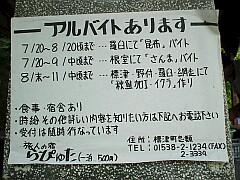 アルバイトあります
7/20〜8/20頃まで…羅臼にて「昆布」バイト
7/20〜9/中頃まで…根室にて「さんま」バイト
8/末〜11/中頃まで…標津・野付・羅臼・網走にて
「秋鮭加工・イクラ」作り
・食事・宿舎あり
・時給その他詳しい内容を知りたい方は下記へお電話下さい
・受付は随時行なっています
旅人の宿
らぴゅた(一泊500円)
住所:標津町忠類
TEL 01538-2-1234(FAX)
2-3339